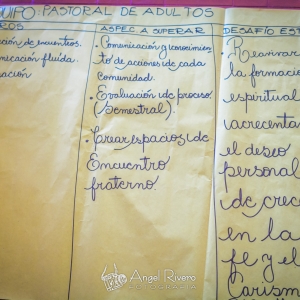 QUIPO PASTORAL DE ADULTOS
ROS
ASPEC. A SUPERAR
DESAFÍO EST
ción de encuentros.
cación fluida.
ación
• Comunicación y conocimien
to de acciones de cada
comunidad.
• Evaluación de proceso
(Semestral).
• Crear espacios de
Encuentro
fraterno.
• Reavivar
la formació
espiritual
acrecenta
el deseo
personal
de crec
en la
fe y el
Carism
Angel Rivera
FOTOGRAFÍA